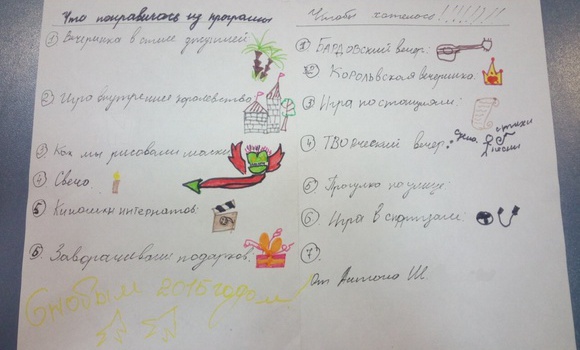 Что понравилось из программы
1 Вечеринка в стиле джунглей
2 Игра внутреннее королевство
3 Как мы рисовали маски
4 Свеча.
5 Киношки интернатов:
6 Заворачивание подарков.
С новым 2016 годом
Чтобы хотелось!!!!!!!
1 Бардовский вечер:
2 Королевская вечеринка:
3 Игра по станциям:
4 Творческий вечер: сцена стихи песни
5 Прогулка по улице:
6. Игра в
7.
От Антона Ш.